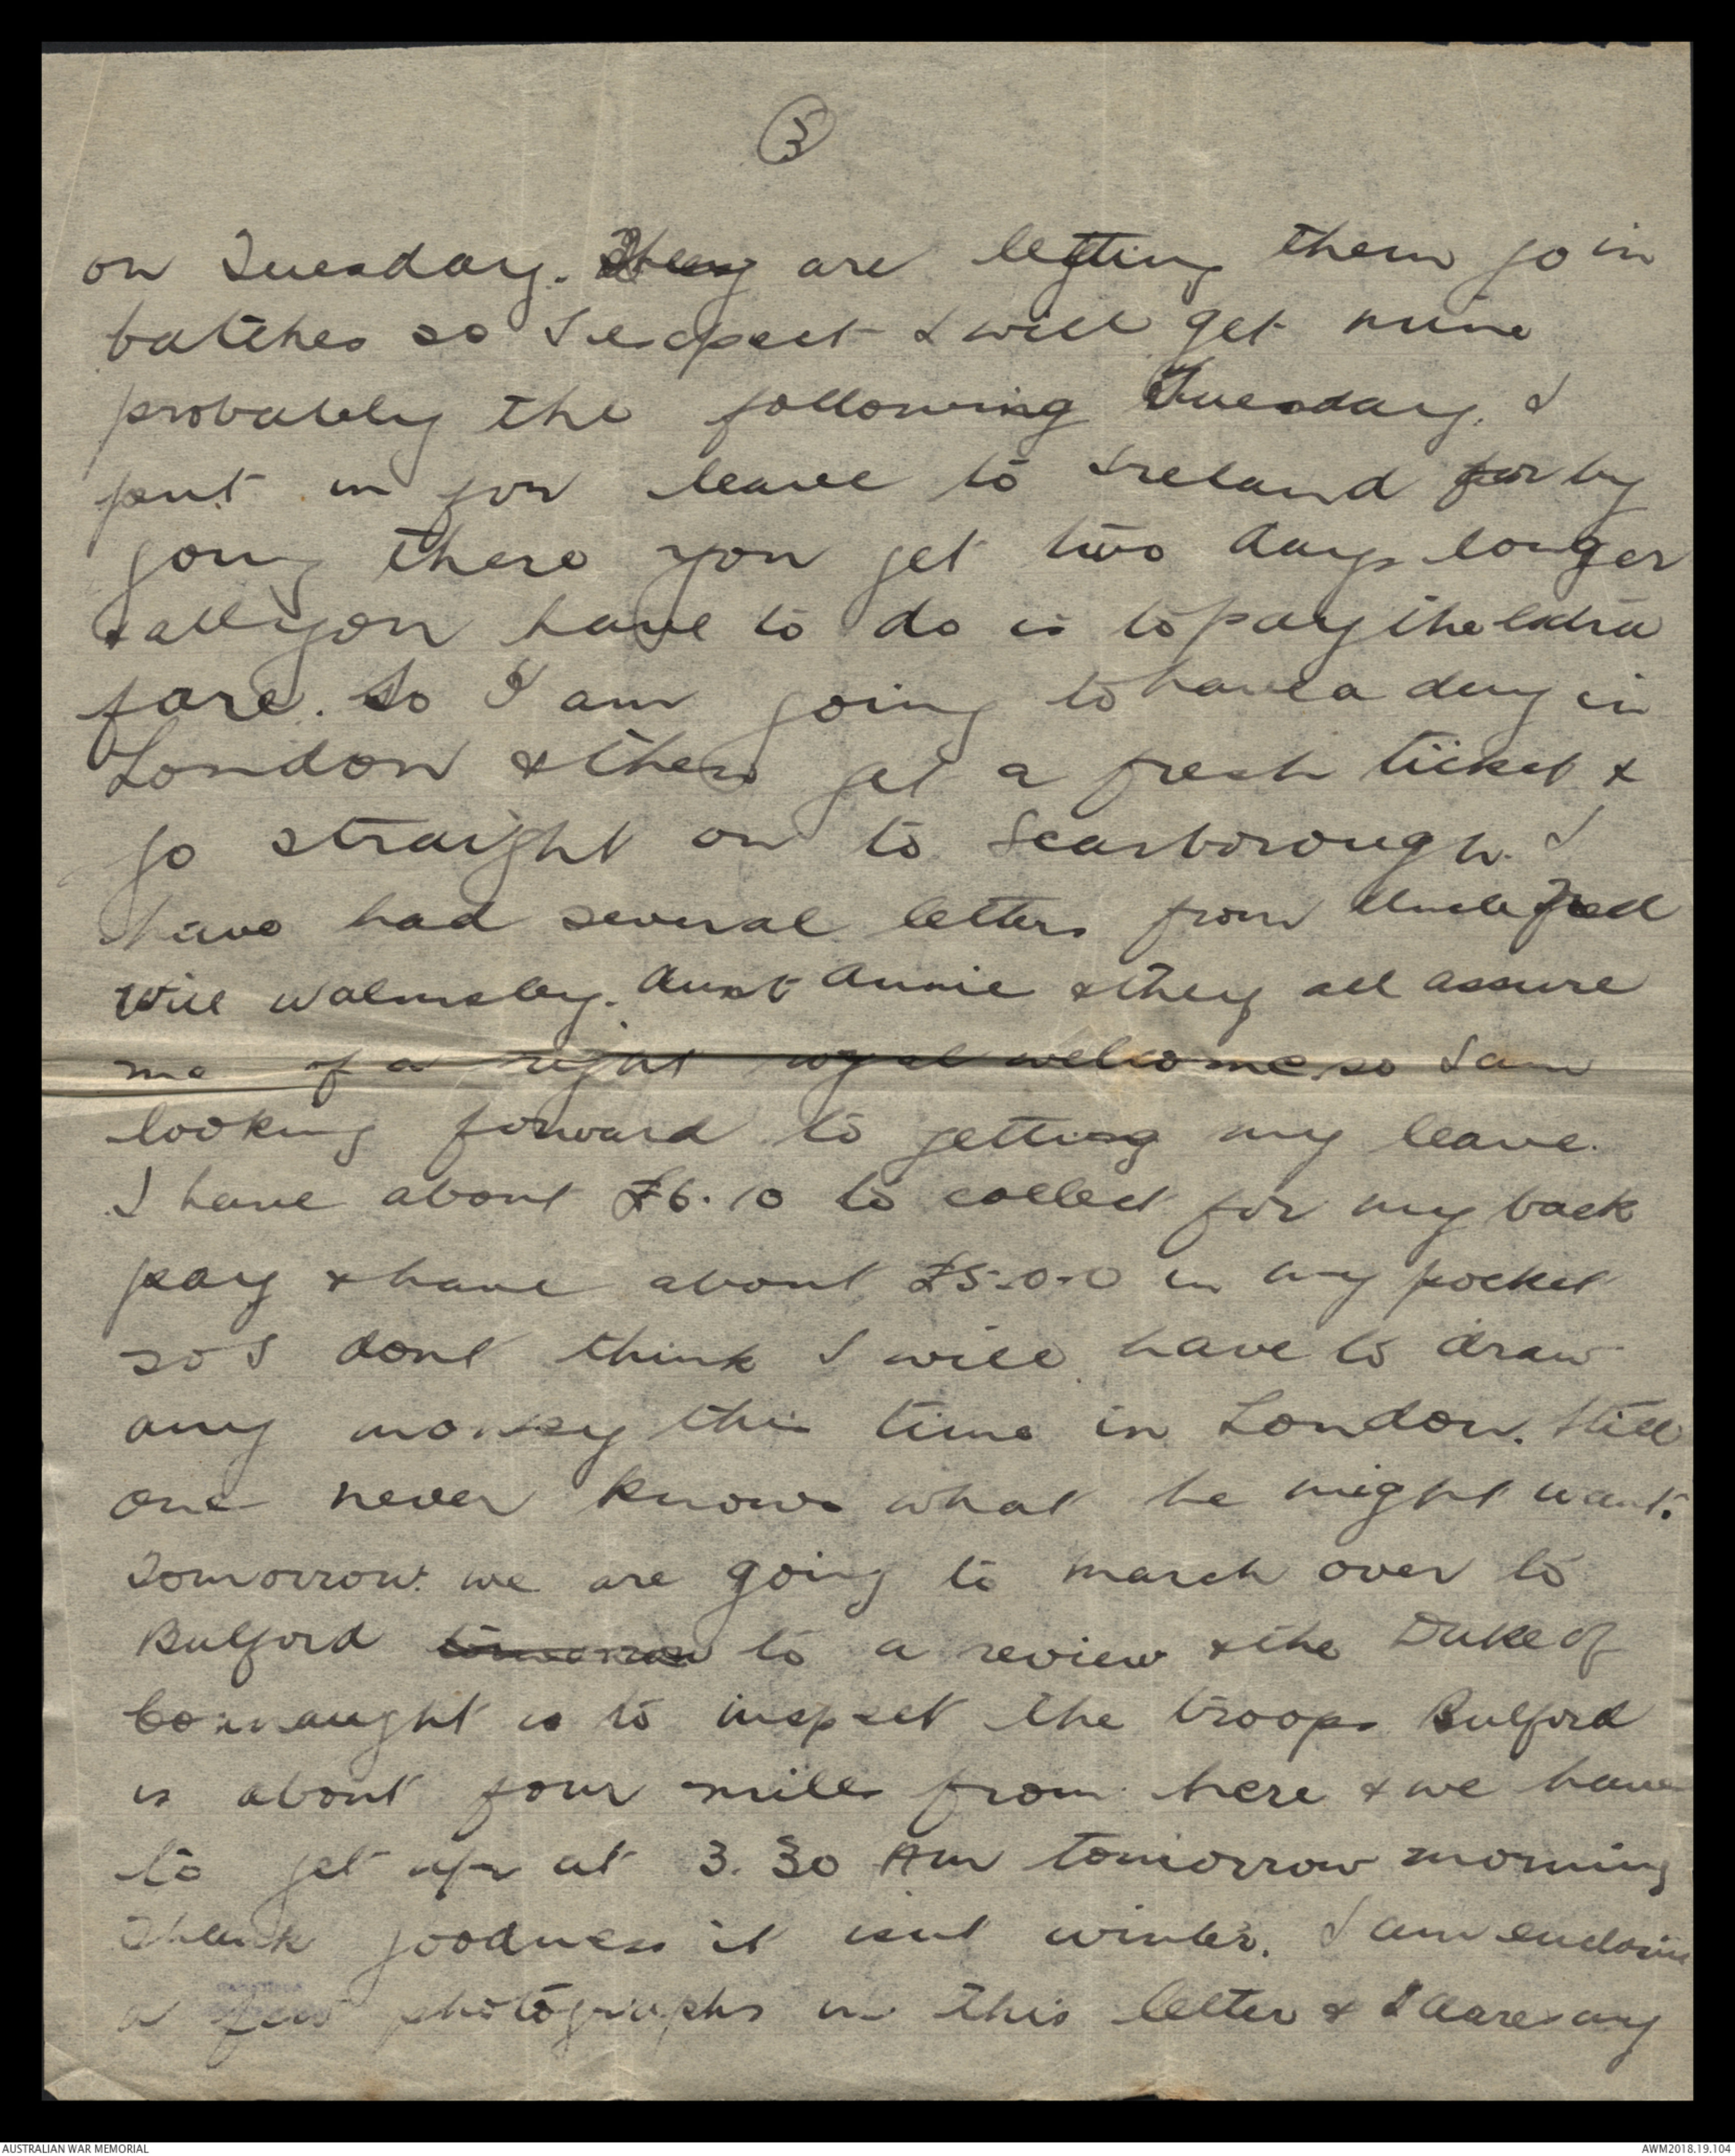 5
on Tuesday. They are letting them go in
batches so I expect I will get mine
probably the following Tuesday. I
put in for leave to Ireland for by
going there you get two days longer
& all you have to do is to pay the extra
fare. So I am going to have a day in
London & then get a fresh ticket &
go straight on to Scarborough. I
have had several letters from Uncle Fred
Will Walmsley. Aunt Annie & they all assure
me of a right royal welcome, so I am
looking forward to getting my leave.
I have about £6.10 to collect for my back
pay & have about £5-0-0 in my pocket
so I dont think I will have to draw
any money this time in London. Still
one never knows what he might want.
Tomorrow we are going to march over to
Bulford tomorrow to a review & the Duke of
Connaught is to inspect the troops Bulford
is about four miles from here & we have
to get up at 3.30 Am tomorrow morning
Thank goodness it isnt winter. I am enclosing
a few photographs in this letter & I daresay
AUSTRALIAN WAR MEMORIAL
AWM2018.19.104